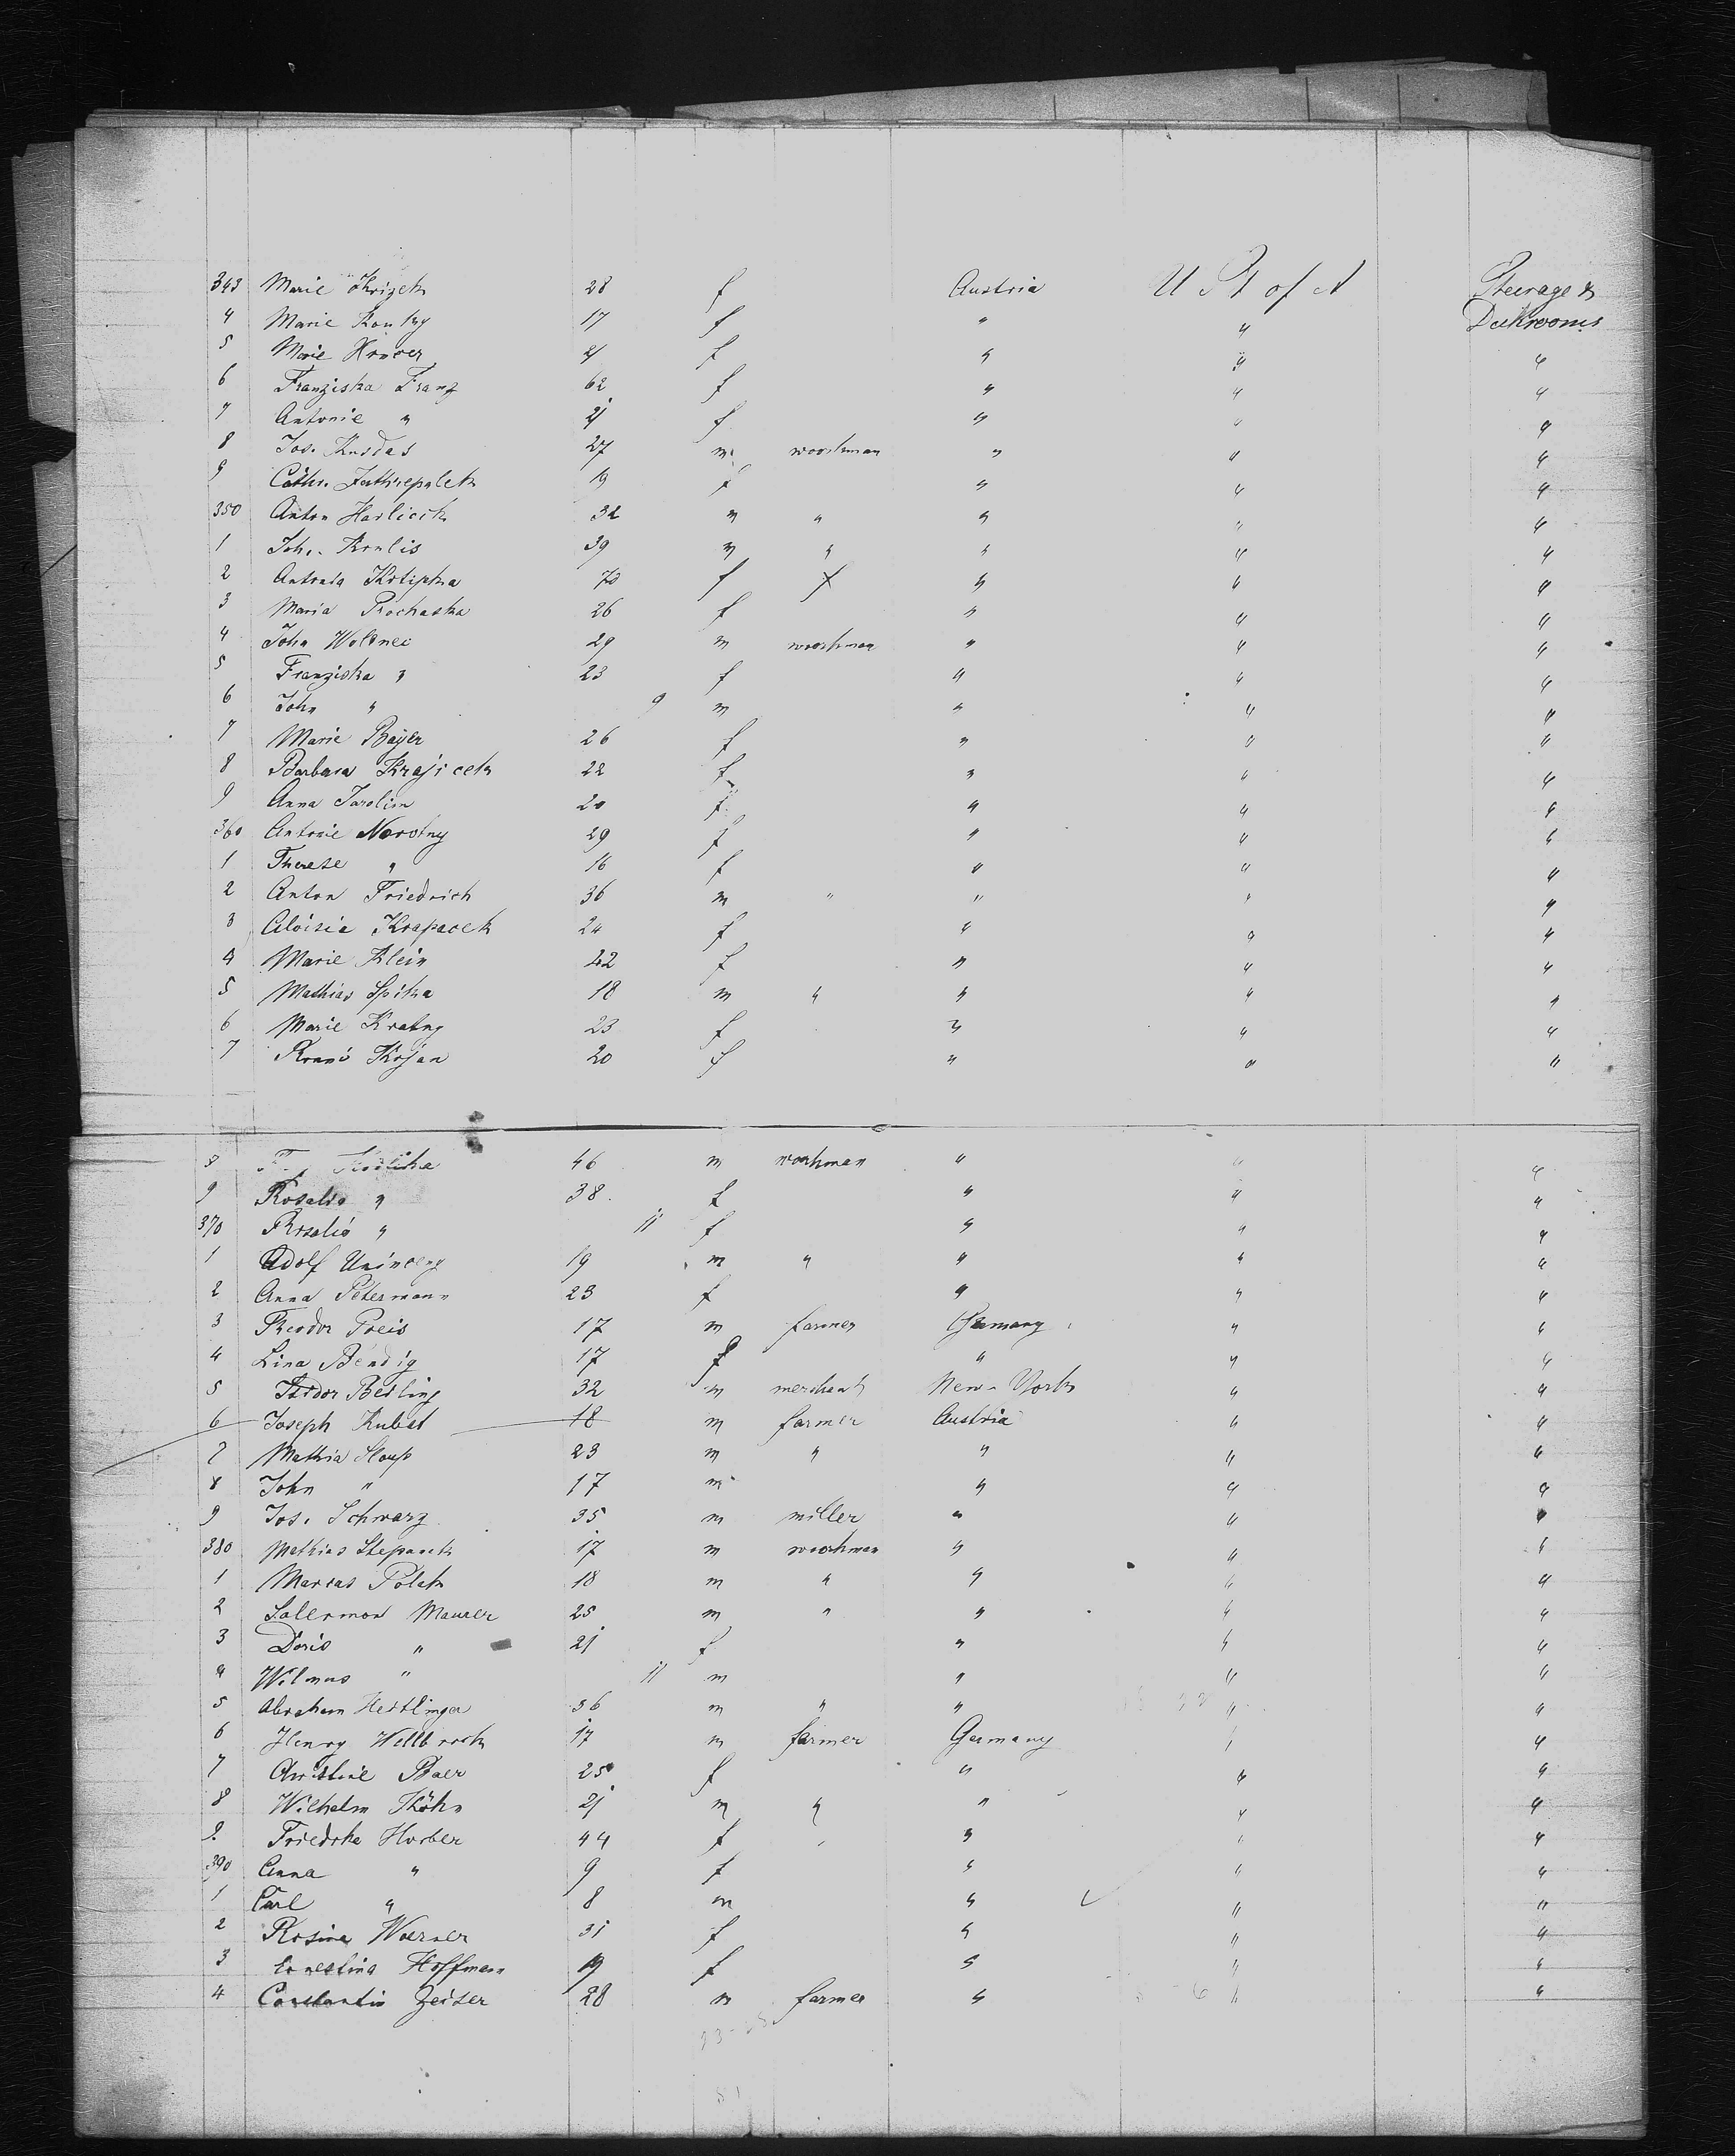 343 Marie Krizek 28 f Austria U St of A Steerage &
4 Marie Koutny 17 f " " Deckrooms
5 Marie 21 f " " "
6 Franziska Franz 62 f " " "
7 Antonie " 21 f " " "
8 Jos. Kusdas 27 m workman " " "
9 Cathr. 19 f " " "
350 Anton Havlicek 32 m " " " "
1 Joh. 39 m " " " "
2 Antonia 70 f " " "
3 Maria Prochaska 26 f " " "
4 John Wolenec 29 m workman " " "
5 Franziska " 23 f " " "
6 John " 9 m " " "
7 Marie Bayer 26 f " " "
8 Barbara Krajicek 22 f " " "
9 Anna Jarolim 20 f " " "
360 Antonie Novotny 29 f " " "
1 Therese " 16 f " " "
2 Anton Friedrich 36 m " " " "
3 Aloisia Krapacek 24 f " " "
4 Marie Klein 22 f " " "
5 Mathias Spika 18 m " " " "
6 Marie Kratny 23 f " " "
7 Kojan 20 f " " "
8 46 m workman " " "
9 Rosalia " 38 f " " "
370 Rosalia " 11 f " " "
1 Adolf 19 m " " " "
2 Anna Petermann 23 f " " "
3 Theodor Preis 17 m farmer Germany " "
4 Lina Bendig 17 f " " "
5 Isidor Besling 32 m merchant New-York " "
6 Joseph Kubat 18 m farmer Austria " "
7 Mathia Sloup 23 m " " " "
8 John " 17 m " " "
9 Jos. Schwarz 35 m miller " " "
380 Mathias Stepanek 17 m workman " " "
1 Marcas Polak 18 m " " " "
2 Salermon Maurer 25 m " " " "
3 Doris " 21 f " " "
4 Wilmus " 11 m " " "
5 Abraham Hertlinger 36 m " " " "
6 Henry Wellbrock 17 m farmer Germany " "
7 Christine Baer 25 f " " "
8 Wilhelm Köhn 21 m " " " "
9 Friedrke Horber 44 f " " "
390 Anna " 9 f " " "
1 Carl " 8 m " " "
2 Rosina Woerner 31 f " " "
3 Ernestina Hoffmann 19 f " " "
4 Constantin Zeiser 28 m farmer " " "